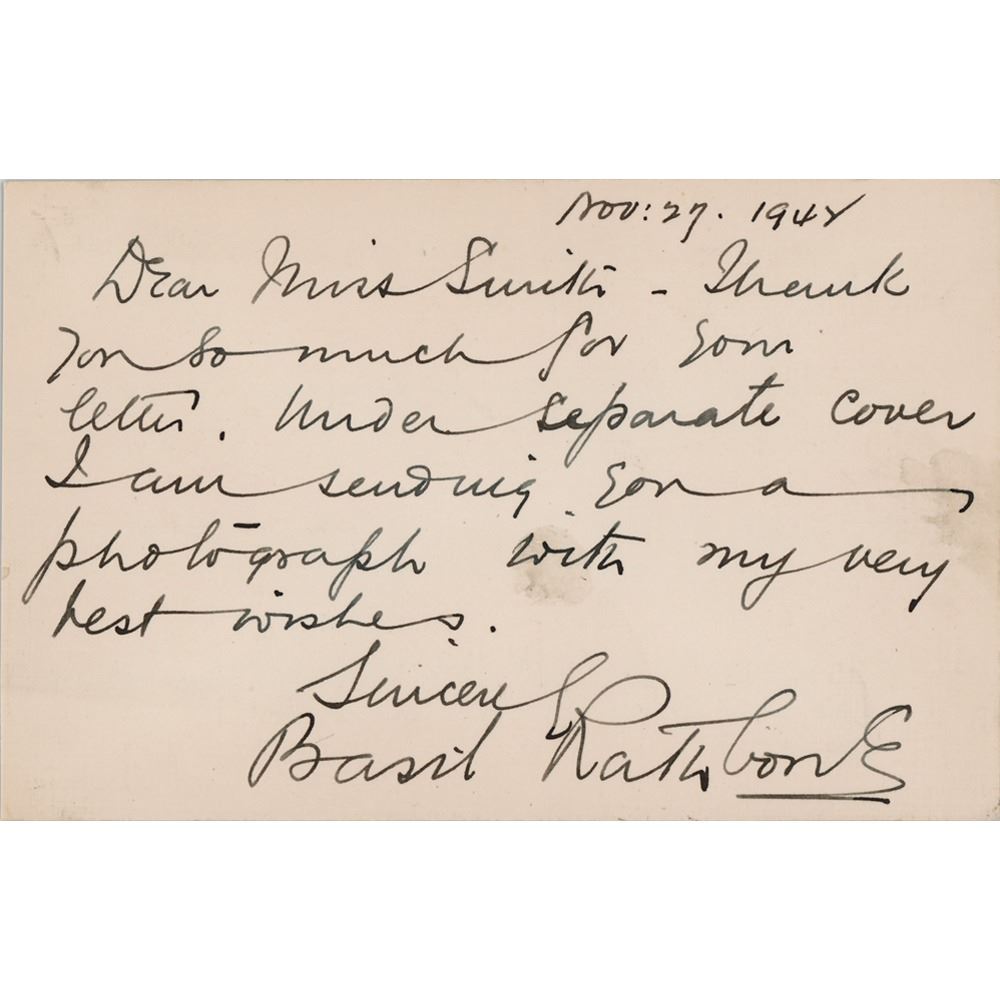 Nov: 27. 194
Dear Miss Smith - Thank
you so much for your
letter. Under separate cover
I am sending you a
photograph with my very
best wishes.
Sincerely
Basil Rathbone